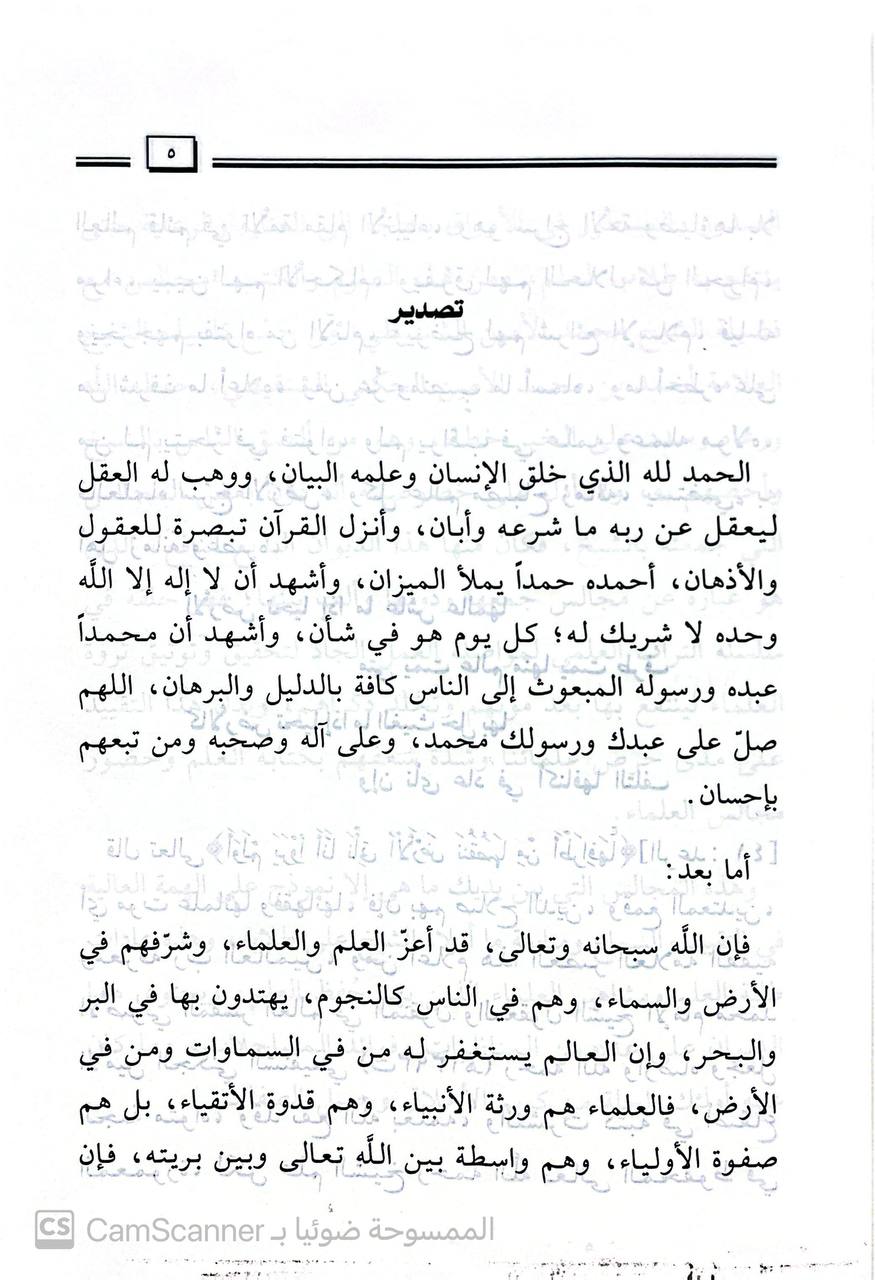 ٥
تصدير
الحمد لله الذي خلق الإنسان وعلمه البيان، ووهب له العقل
ليعقل عن ربه ما شرعه وأبان، وأنزل القرآن تبصرة للعقول
والأذهان، أحمده حمداً يملأ الميزان، وأشهد أن لا إله إلا اللَّه
وحده لا شريك له؛ كل يوم هو في شأن، وأشهد أن محمداً
عبده ورسوله المبعوث إلى الناس كافة بالدليل والبرهان، اللهم
صلّ على عبدك ورسولك محمد، وعلى آله وصحبه ومن تبعهم
بإحسان.
أما بعد:
فإن اللَّه سبحانه وتعالى، قد أعزّ العلم والعلماء، وشرّفهم في
الأرض والسماء، وهم في الناس كالنجوم، يهتدون بها في البر
والبحر، وإن العالم يستغفر له من في السماوات ومن في
الأرض، فالعلماء هم ورثة الأنبياء، وهم قدوة الأتقياء، بل هم
صفوة الأولياء، وهم واسطة بين اللَّه تعالى وبين بريته، فإن
CS CamScanner الممسوحة ضوئيا بـ